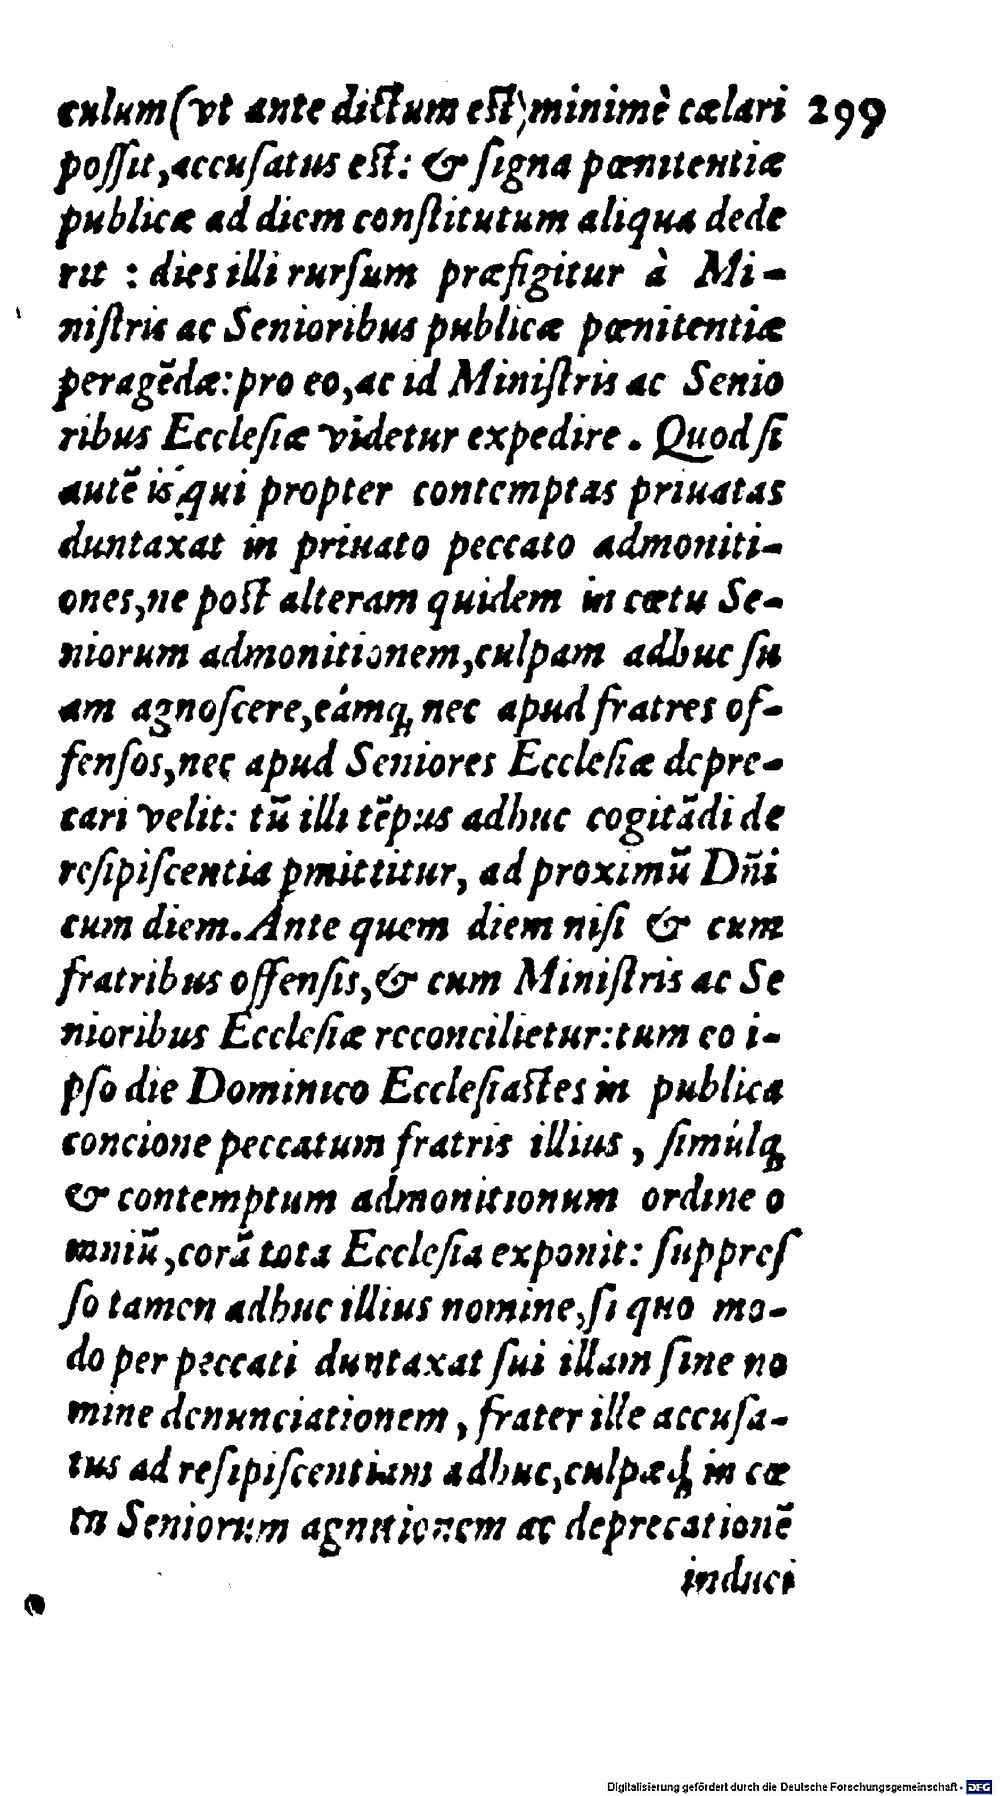 culum (vt ante dictum est) minimè cælari 299
possit, accusatus est: & signa pœnitentiæ
publicæ ad diem constitutum aliqua dede
rit : dies illi rursum præfigitur à Mi-
nistris ac Senioribus publicæ pœnitentiæ
peragẽdæ: pro eo, ac id Ministris ac Senio
ribus Ecclesiæ videtur expedire. Quod si
autẽ is, qui propter contemptas priuatas
duntaxat in priuato peccato admoniti-
ones, ne post alteram quidem in cœtu Se-
niorum admonitionem, culpam adhuc su
am agnoscere, eámq; nec apud fratres of-
fensos, nec apud Seniores Ecclesiæ depre-
cari velit: tũ illi tẽpus adhuc cogitãdi de
resipiscentia ꝑmittitur, ad proximũ Dñi
cum diem. Ante quem diem nisi & cum
fratribus offensis, & cum Ministris ac Se
nioribus Ecclesiæ reconcilietur: tum eo i-
pso die Dominico Ecclesiastes in publica
concione peccatum fratris illius, simúlq;
& contemptum admonitionum ordine o
mniũ, corã tota Ecclesia exponit: suppres
so tamen adhuc illius nomine, si quo mo-
do per peccati duntaxat sui illam sine no
mine denunciationem, frater ille accusa-
tus ad resipiscentiam adhuc, culpæq; in cœ
tu Seniorum agnitionem ac deprecationẽ
induci
Digitalisierung gefördert durch die Deutsche Forschungsgemeinschaft - DFG